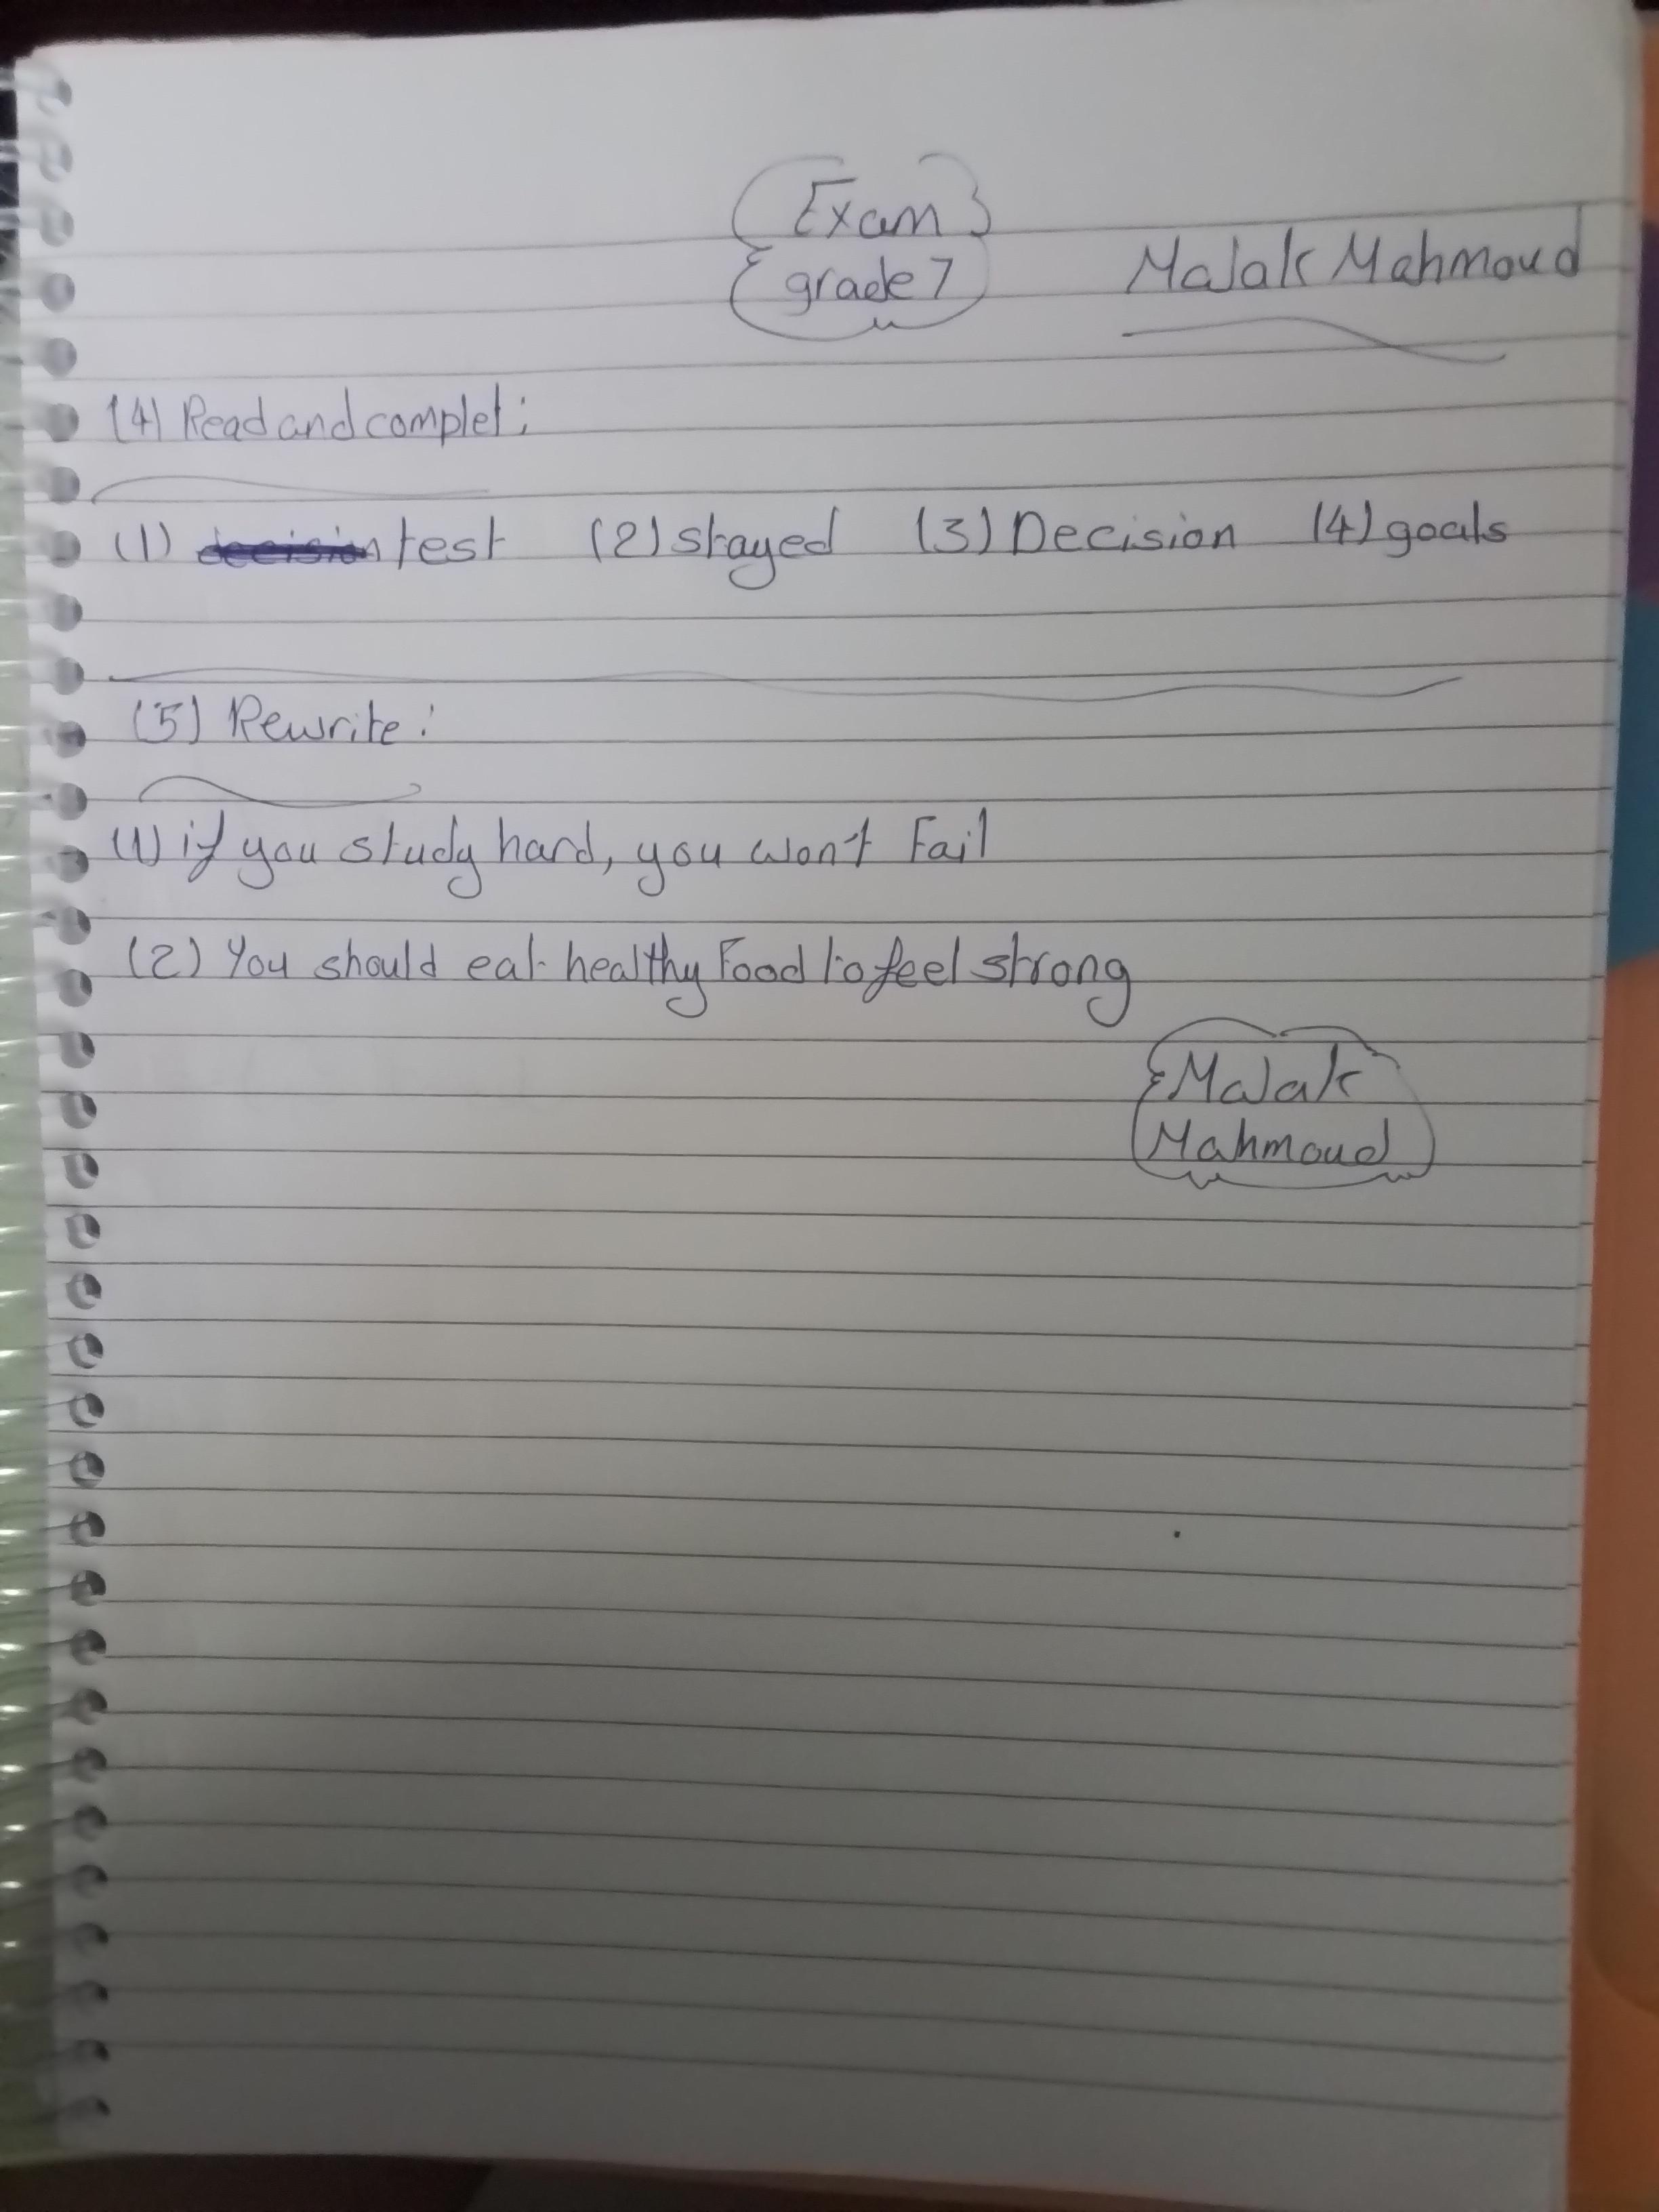 Exam
grade 7
Malak Mahmoud
(4) Read and complet:
(1) decision test (2) stayed (3) Decision (4) goals
(5) Rewrite:
(1) if you study hard, you won't Fail
(2) You should eat healthy Food to feel strong
Malak
Mahmoud